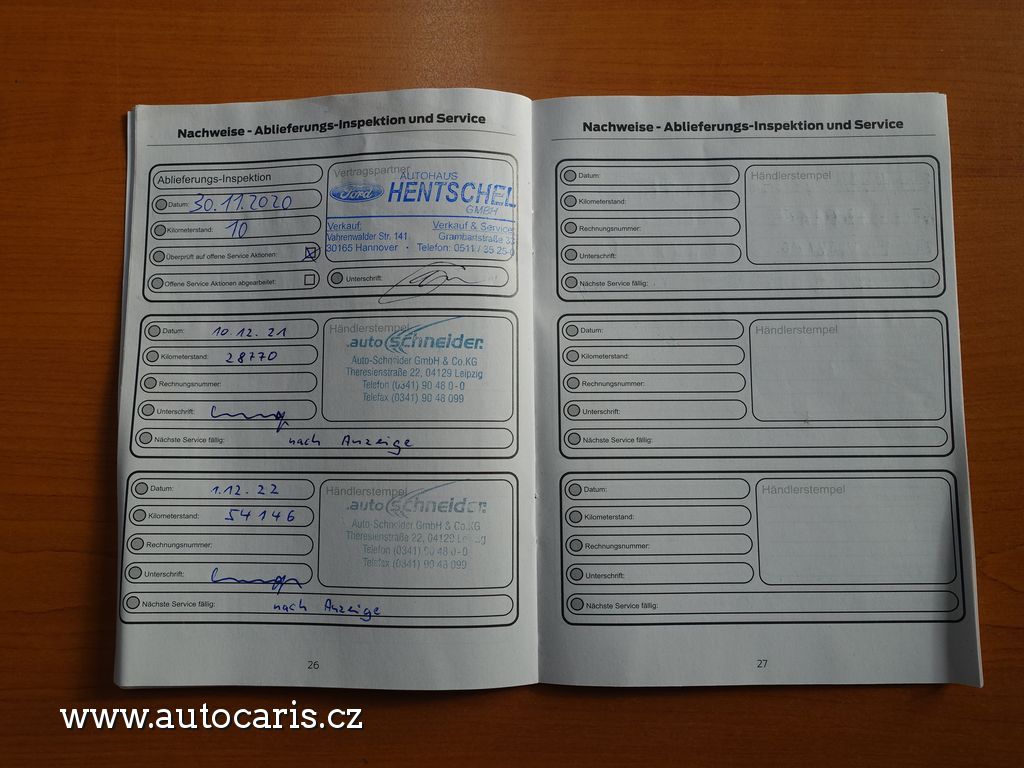 Nachweise - Ablieferungs-Inspektion und Service
Ablieferungs-Inspektion
Datum: 30.11.2020
Kilometerstand: 10
Überprüft auf offene Service Aktionen:
Offene Service Aktionen abgearbeitet:
Vertragspartner
AUTOHAUS
Ford HENTSCHEL
GMBH
Verkauf: Verkauf & Service
Vahrenwalder Str. 141 Grambartstraße
30165 Hannover · Telefon: 0511 / 35 25-0
Unterschrift:
Datum: 10.12.21
Kilometerstand: 28770
Rechnungsnummer:
Unterschrift:
Nächste Service fällig: nach Anzeige
Händlerstempel
auto schneider
Auto-Schneider GmbH & Co.KG
Theresienstraße 22, 04129 Leipzig
Telefon (0341) 90 48 0-0
Telefax (0341) 90 48 099
Datum: 1.12.22
Kilometerstand: 54146
Rechnungsnummer:
Unterschrift:
Nächste Service fällig: nach Anzeige
Händlerstempel
auto schneider
Auto-Schneider GmbH & Co.KG
Theresienstraße 22, 04129 Leipzig
Telefon (0341) 90 48 0-0
Telefax (0341) 90 48 099
26
Nachweise - Ablieferungs-Inspektion und Service
Datum:
Kilometerstand:
Rechnungsnummer:
Unterschrift:
Nächste Service fällig:
Händlerstempel
Datum:
Kilometerstand:
Rechnungsnummer:
Unterschrift:
Nächste Service fällig:
Händlerstempel
Datum:
Kilometerstand:
Rechnungsnummer:
Unterschrift:
Nächste Service fällig:
Händlerstempel
27
www.autocaris.cz